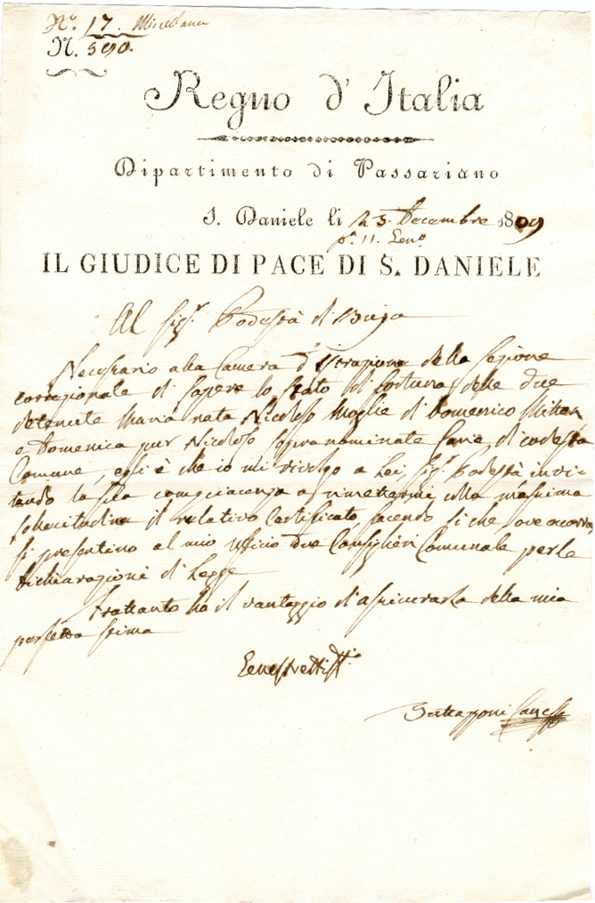 Nº. 17. Miscellanea
N. 590.
Regno d'Italia
Dipartimento di Passariano
S. Daniele li 23. Decembre 1809
p. 11. Gen.º
IL GIUDICE DI PACE DI S. DANIELE
Al Sig.r Podestà di Buja
Necessario alla Camera d'Istruzione della Sezione
correzionale di sapere lo stato di fortuna delle due
detenute Maria nata Nicoloso moglie di Domenico
e Domenica pur Nicoloso sopranominate di codesta
Comune, egli è che io mi rivolgo a Lei, Sig.r Podestà invi-
tando la sua compiacenza a rimettermi colla massima
sollecitudine il relativo Certificato, facendo sì che, ove occorra,
si presentino al mio Ufficio due Consiglieri Comunale per le
dichiarazioni di Legge
Frattanto ho il vantaggio d'assicurarla della mia
perfetta stima